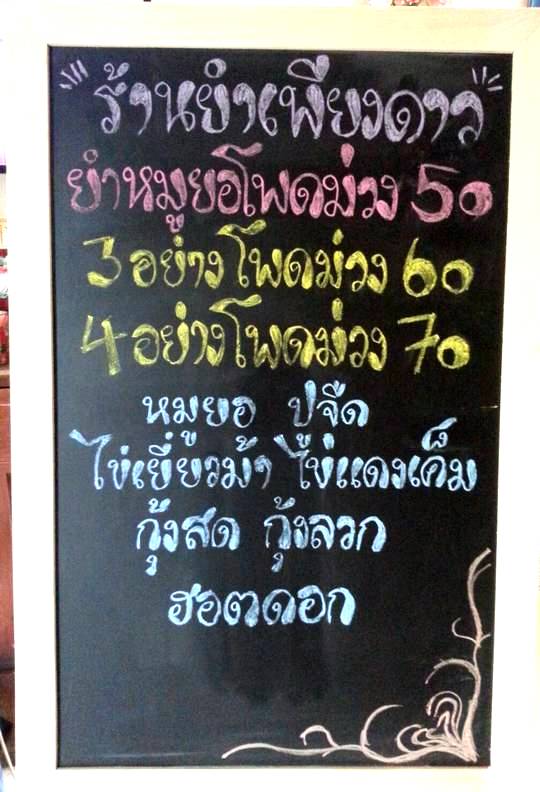 "ร้านยำเพียงดาว"
ยำหมูยอโพดม่วง 50
3 อย่างโพดม่วง 60
4 อย่างโพดม่วง 70
หมูยอ ปูจืด
ไข่เยี่ยวม้า ไข่แดงเค็ม
กุ้งสด กุ้งลวก
ฮอตดอก